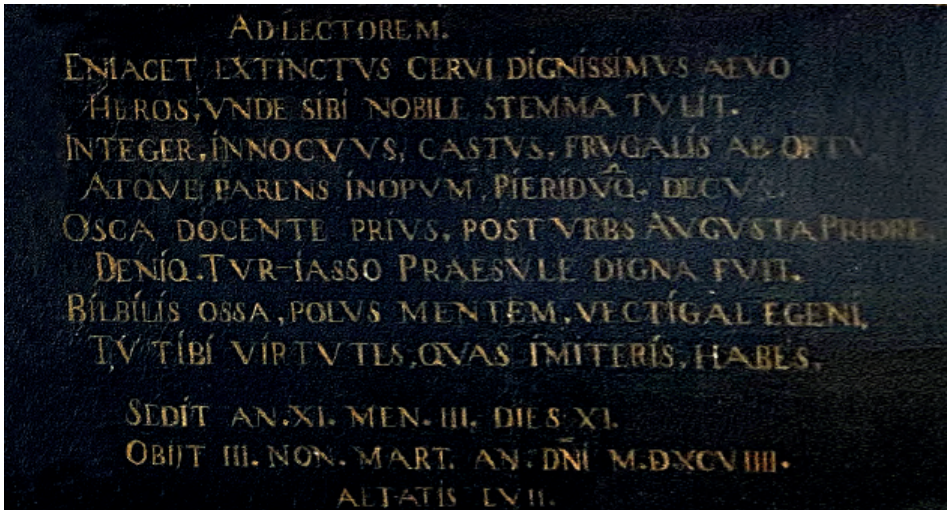 AD LECTOREM.
EN IACET EXTINCTVS CERVI DÍGNÍSSÍMVS AEVO
HEROS, VNDE SIBÍ NOBILE STEMMA TVLÍT.
ÍNTEGER, ÍNNOCVVS, CASTVS, FRVGALÍS AB ORTV,
ATQVE PARENS ÍNOPVM, PÍERIDVQ̂. DECVS.
OSCA DOCENTE PRIVS, POST VRBS AVGVSTA PRIORE,
DENÍQ. TVR-IASSO PRAESVLE DIGNA FVIT.
BÍLBÍLÍS OSSA, POLVS MENTEM, VECTÍGAL EGENÍ,
TV TÍBÍ VIRTVTES, QVAS ÍMITERÍS, HABES.
SEDÍT AN. XI. MEN. III. DIES XI.
OBIJT III. NON. MART. AN. DN̄Í M.D.XCVIIII.
AETATÍS LVII.